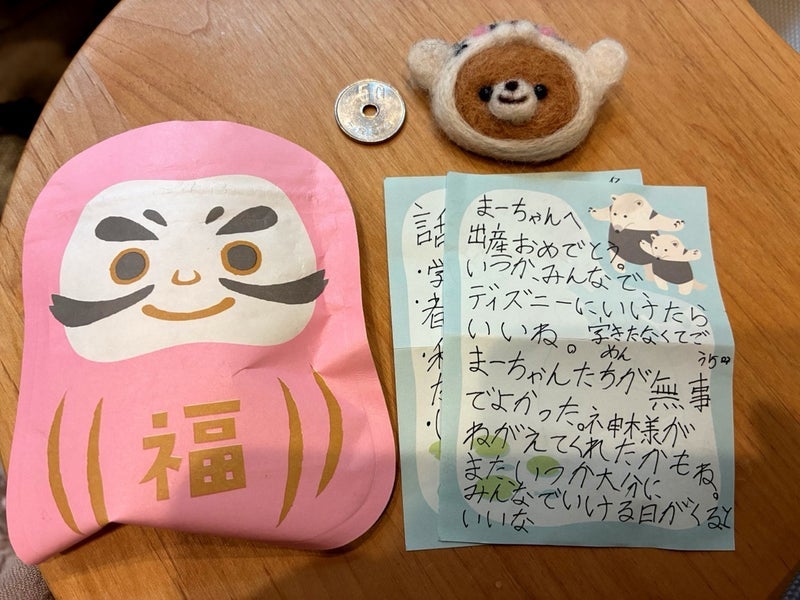 50
福
話
・学
・者
まーちゃんへ
出産おめでとう。
いつかみんなで
ディズニーにいけたら
いいね。字きたなくてご
めん
まーちゃんたちが無事
でよかった。神様が
ねがえてくれたかもね。
またいつか大分に
みんなでいける日がくると
いいな